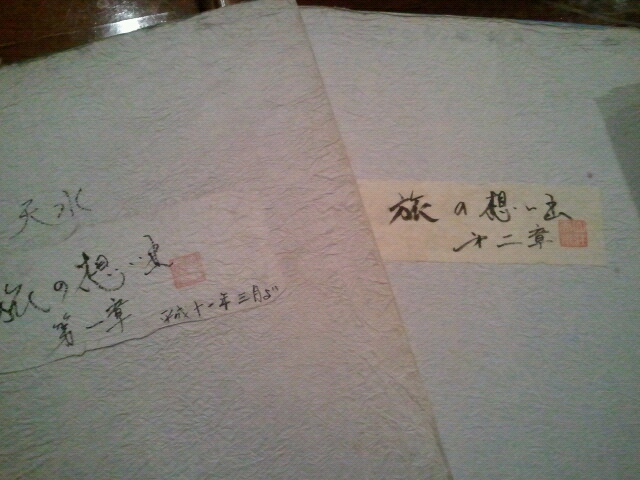 天水
旅の想い出
第一章 平成十一年三月より
旅の想い出
第二章